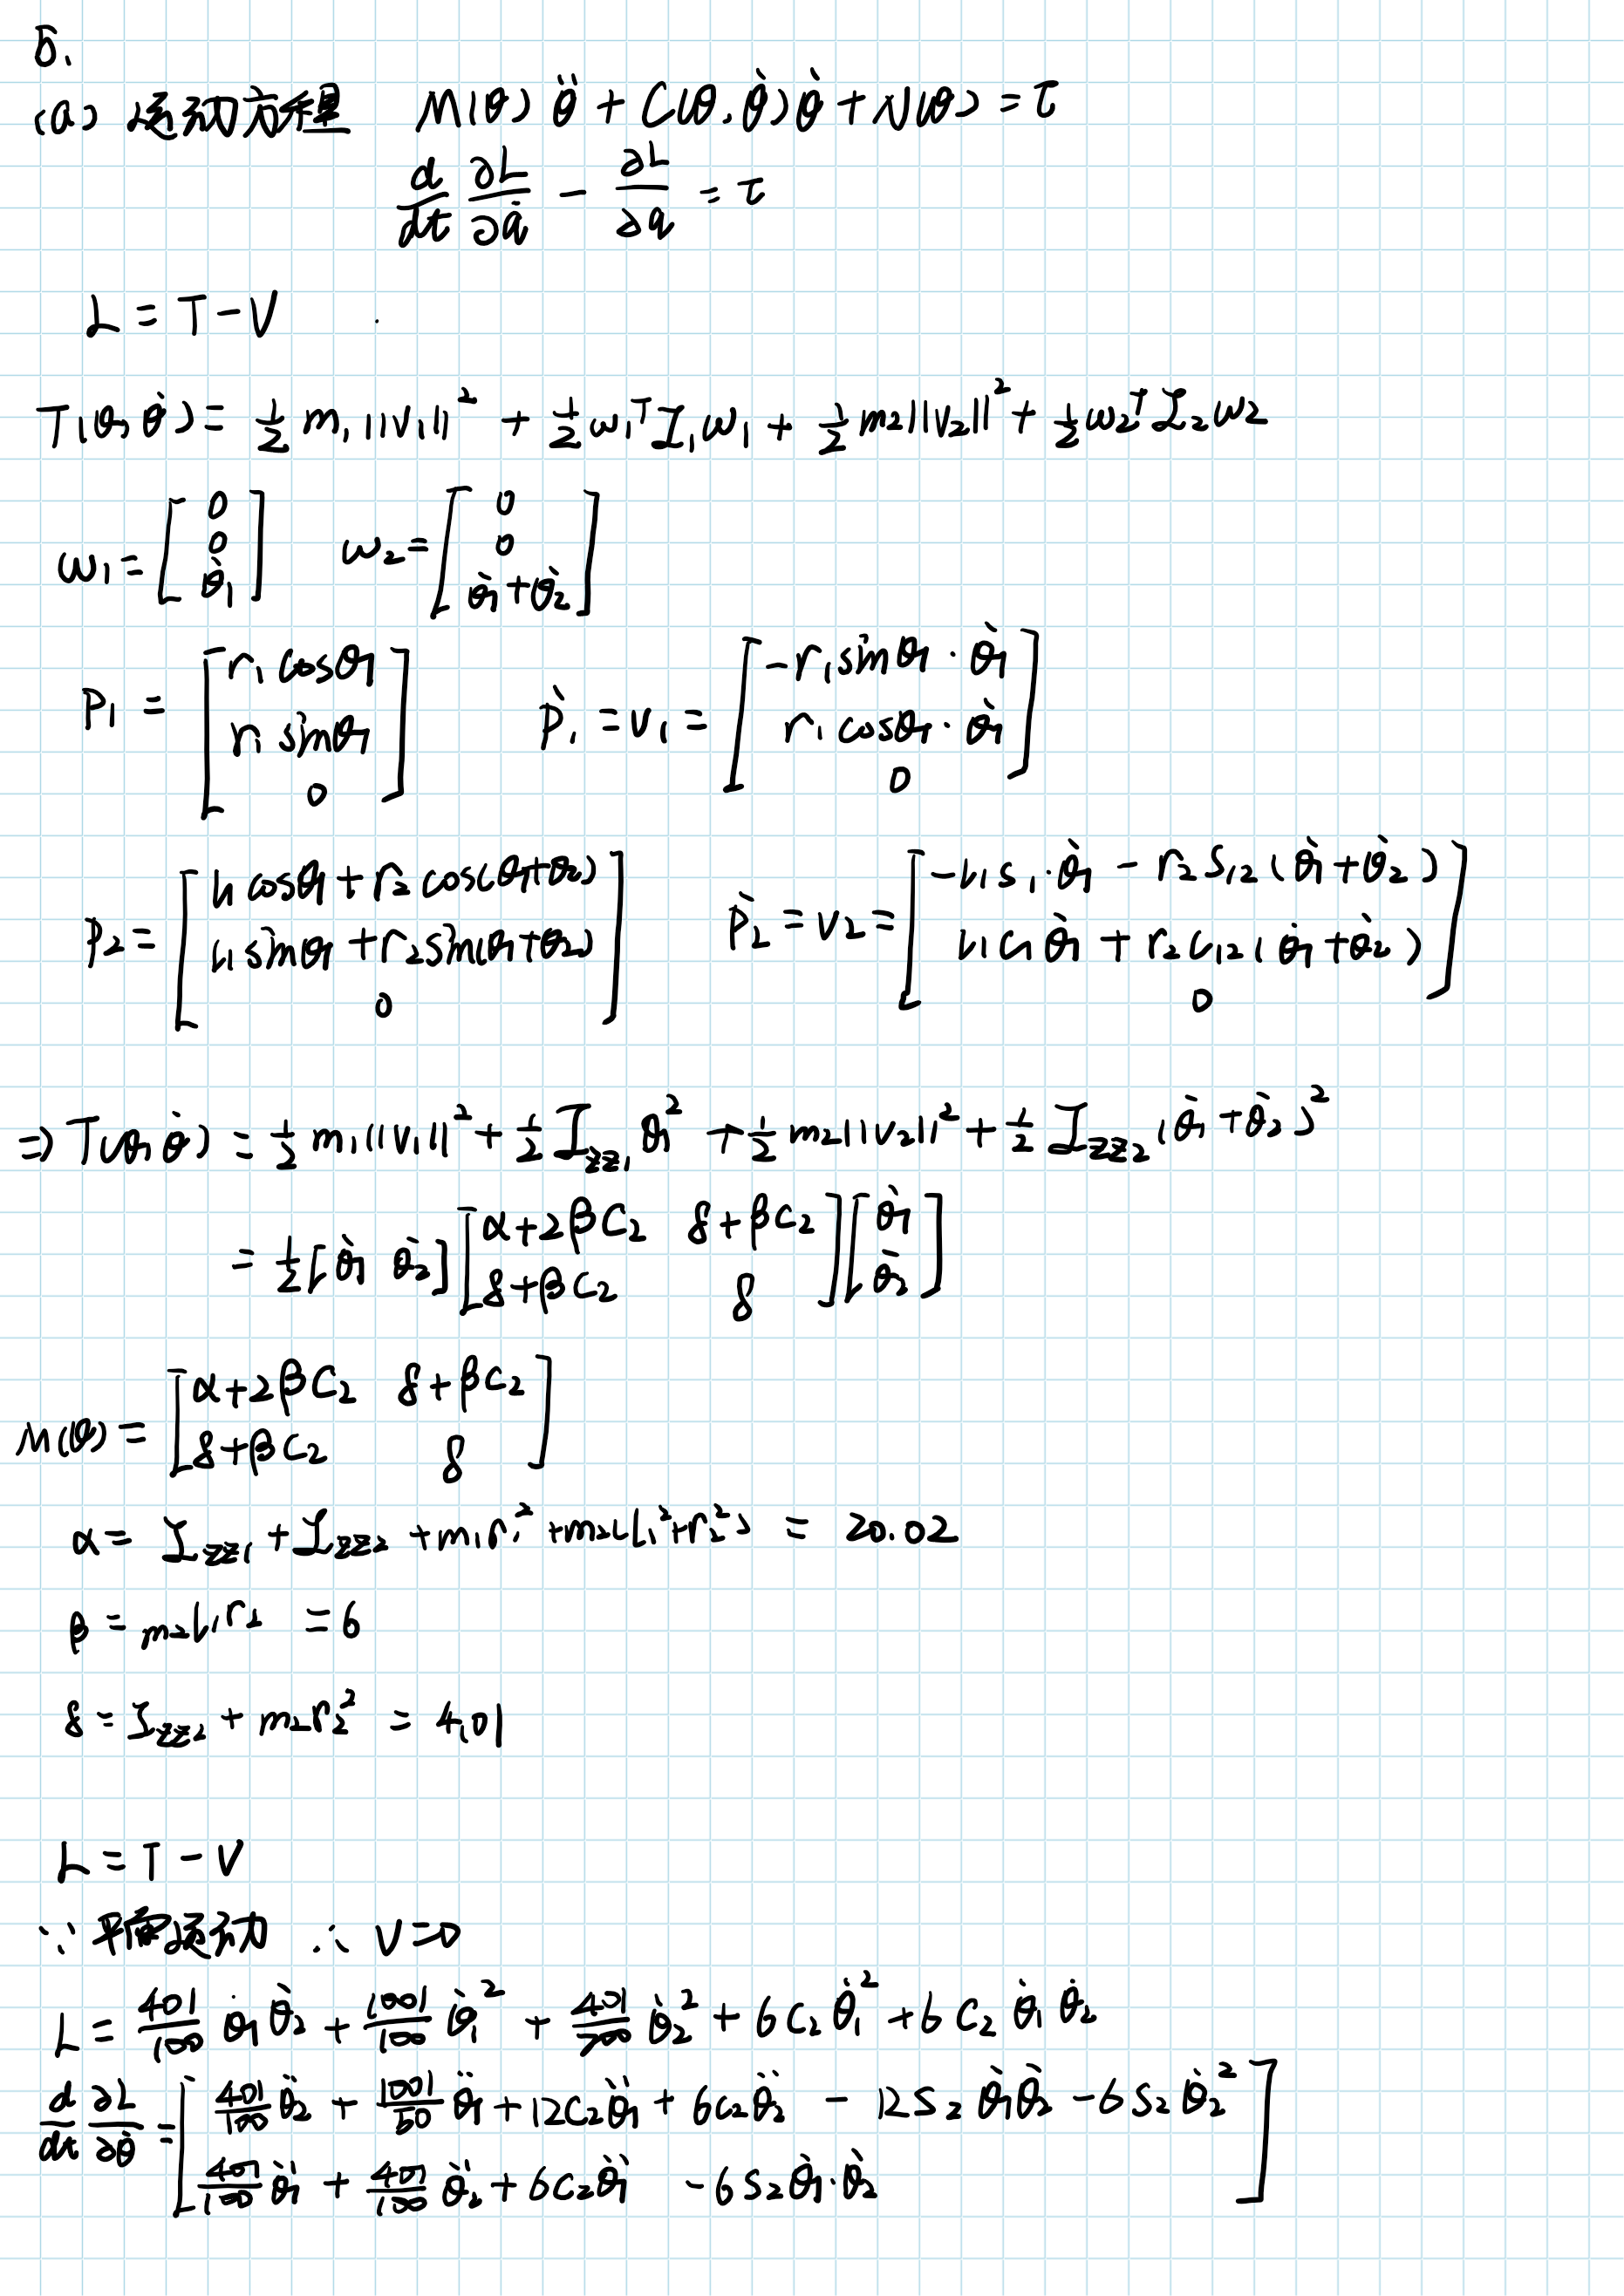 5.
(a) 运动方程 M(θ)θ̈ + C(θ,θ̇)θ̇ + N(θ) = τ
d/dt ∂L/∂q̇ - ∂L/∂q = τ
L = T - V
T(θ,θ̇) = 1/2 m₁||v₁||² + 1/2 ω₁ᵀI₁ω₁ + 1/2 m₂||v₂||² + 1/2 ω₂ᵀI₂ω₂
ω₁ = [0 0 θ̇₁] ω₂ = [0 0 θ̇₁+θ̇₂]
P₁ = [r₁cosθ₁ r₁sinθ₁ 0] Ṗ₁ = v₁ = [-r₁sinθ₁·θ̇₁ r₁cosθ₁·θ̇₁ 0]
P₂ = [l₁cosθ₁+r₂cos(θ₁+θ₂) l₁sinθ₁+r₂sin(θ₁+θ₂) 0] Ṗ₂ = v₂ = [-l₁s₁·θ̇₁ - r₂s₁₂(θ̇₁+θ̇₂) l₁c₁θ̇₁ + r₂c₁₂(θ̇₁+θ̇₂) 0]
⇒ T(θ,θ̇) = 1/2 m₁||v₁||² + 1/2 I_zz₁ θ̇₁² + 1/2 m₂||v₂||² + 1/2 I_zz₂(θ̇₁+θ̇₂)²
= 1/2 [θ̇₁ θ̇₂] [α+2βC₂ δ+βC₂ δ+βC₂ δ] [θ̇₁ θ̇₂]
M(θ) = [α+2βC₂ δ+βC₂ δ+βC₂ δ]
α = I_zz₁ + I_zz₂ + m₁r₁² + m₂(l₁²+r₂²) = 20.02
β = m₂l₁r₂ = 6
δ = I_zz₂ + m₂r₂² = 4.01
L = T - V
∵ 平面运动 ∴ V=0
L = 401/100 θ̇₁θ̇₂ + 1001/100 θ̇₁² + 401/200 θ̇₂² + 6C₂θ̇₁² + 6C₂θ̇₁θ̇₂
d/dt ∂L/∂θ̇ = [401/100 θ̈₂ + 1001/50 θ̈₁ + 12C₂θ̈₁ + 6C₂θ̈₂ - 12S₂θ̇₁θ̇₂ - 6S₂θ̇₂²
401/100 θ̈₁ + 401/100 θ̈₂ + 6C₂θ̈₁ - 6S₂θ̇₁·θ̇₂]